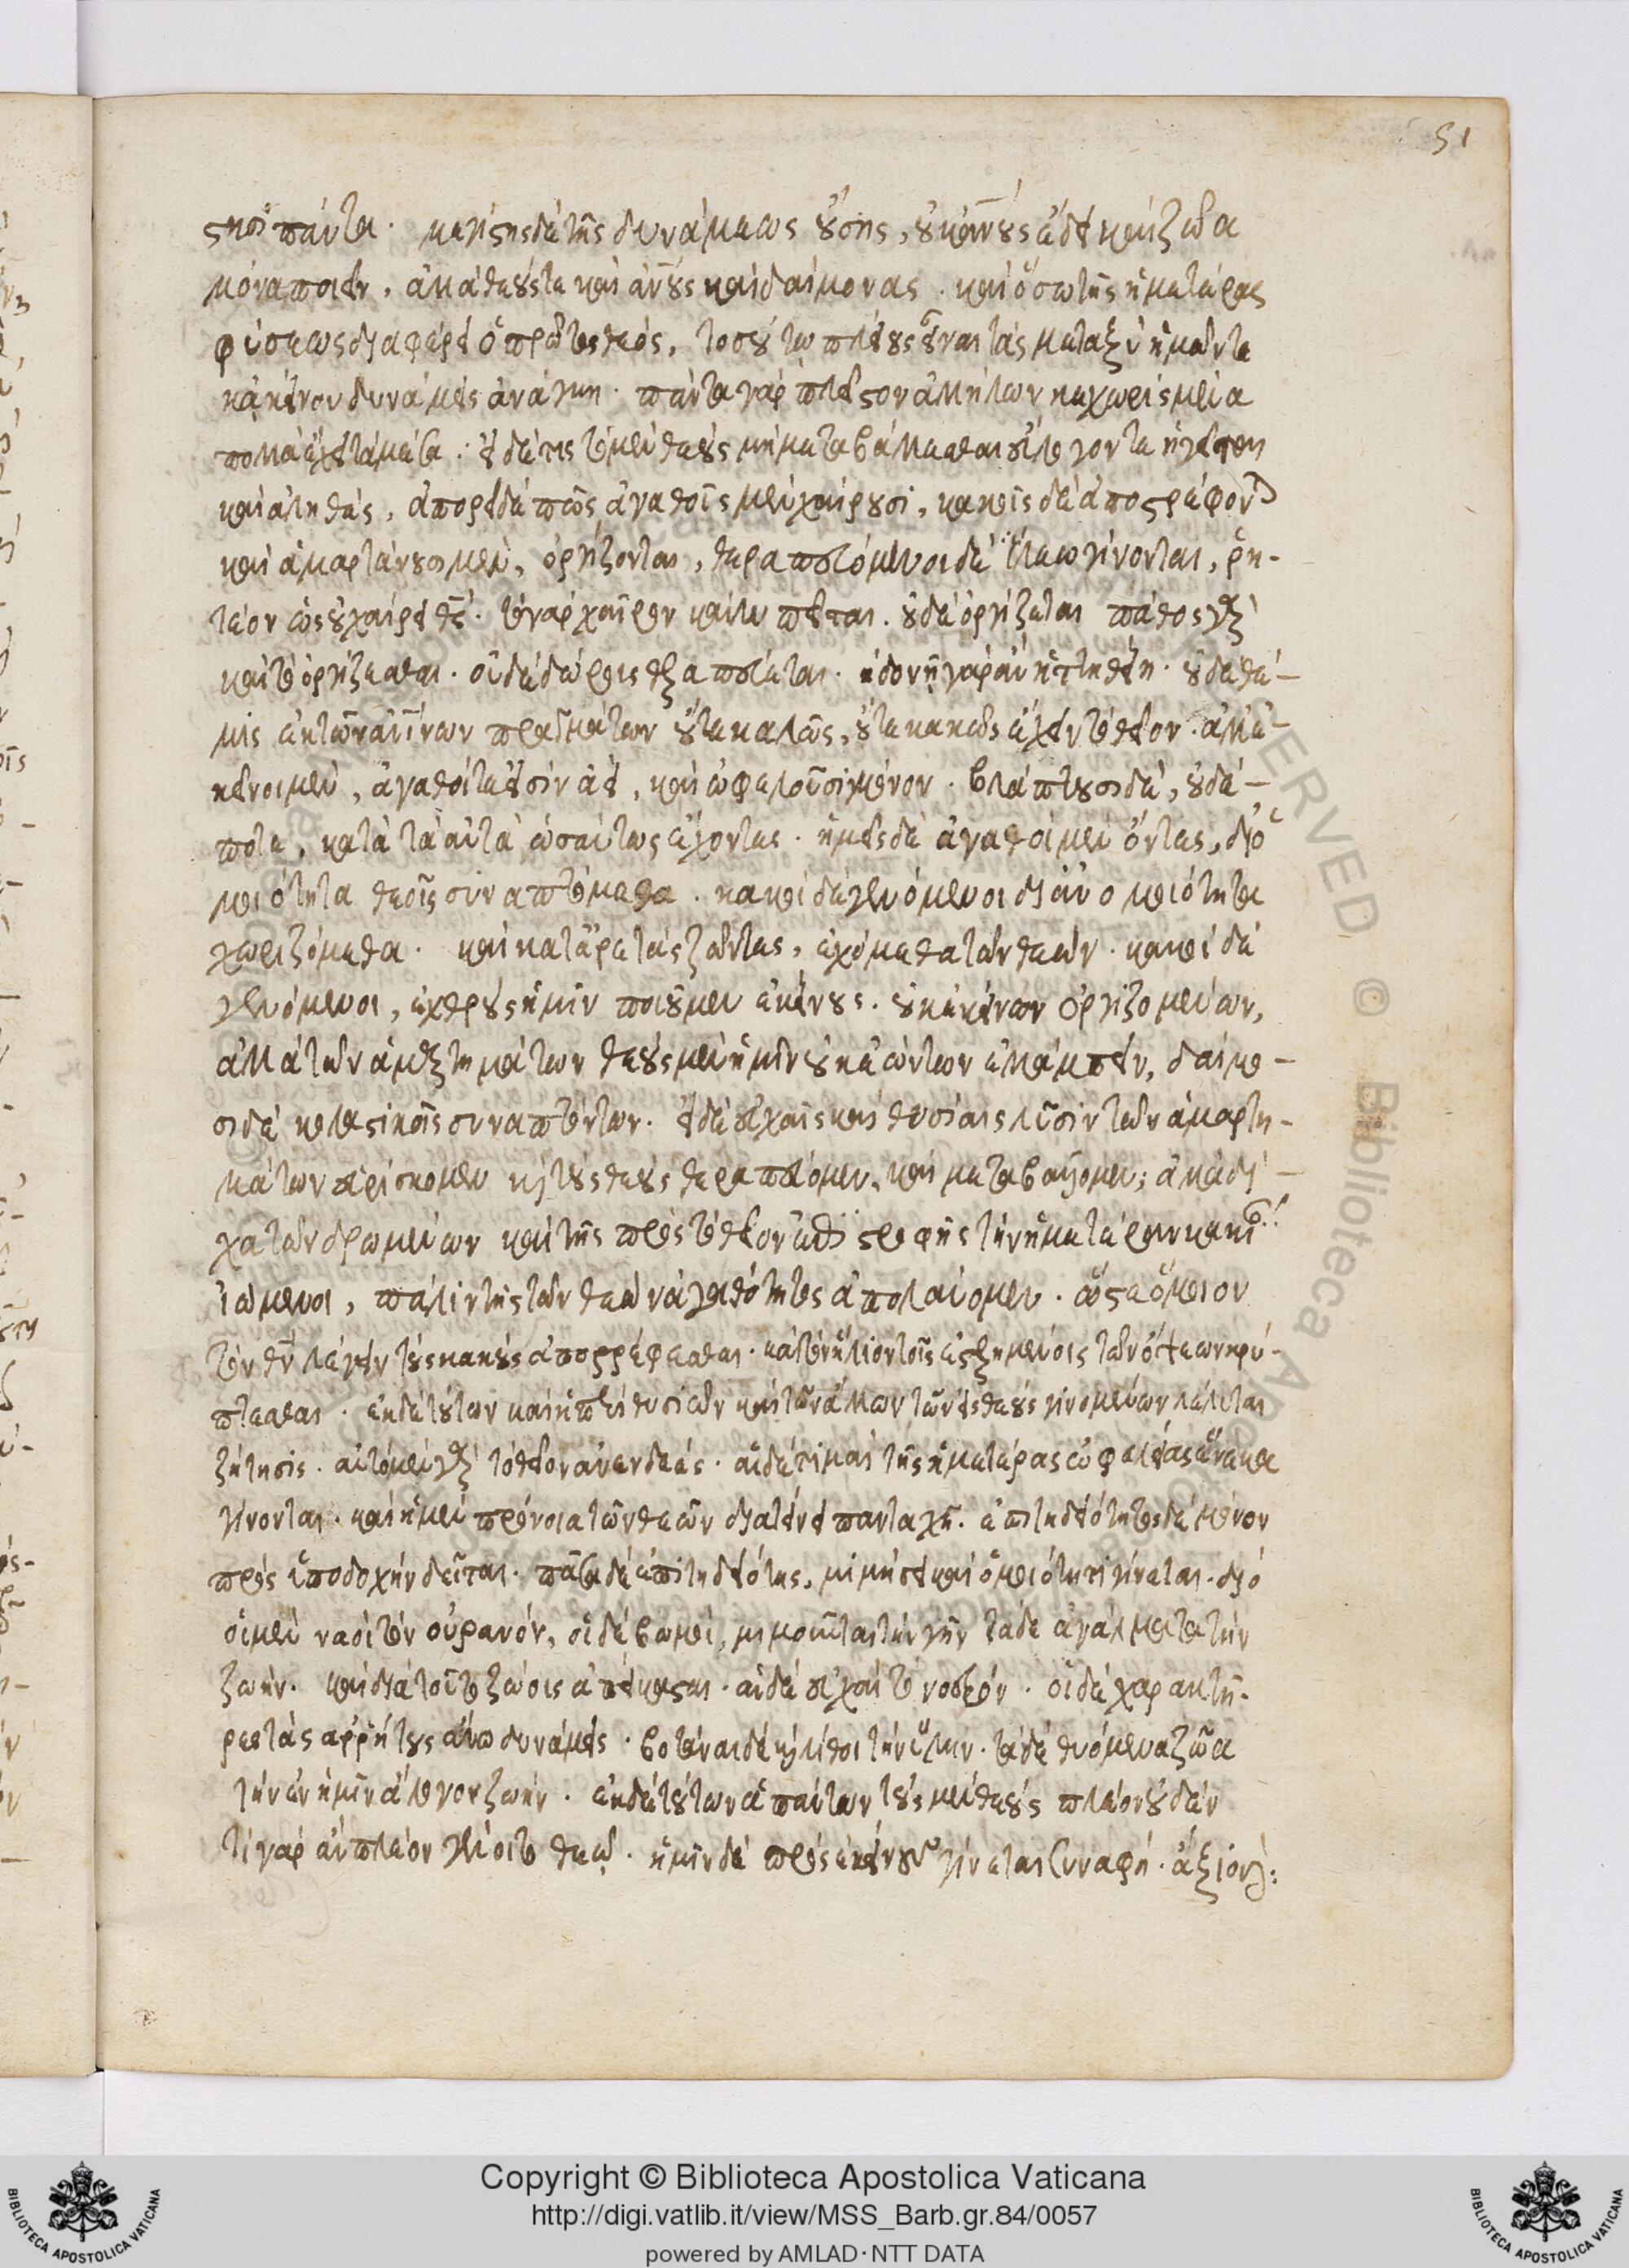 51
στησι πάντα. μεγίστης δὲ τῆς δυνάμεως οὔσης, οὐκ ἀνοὺς ἔδει καὶ ζῶα
μόνα ποιεῖν, ἀλλὰ θεούς τε καὶ ἀνοὺς καὶ δαίμονας. καὶ ὅσω τῆς ἡμετέρας
φύσεως διαφέρει ὁ πρῶτος θεός, τοσούτω πλείους εἶναι τὰς μεταξὺ ἡμῶν τε
κἀκείνου δυνάμεις ἀνάγκη. πάντα γὰρ πλεῖστον ἀλλήλων κεχωρισμένα
πολλὰ ἔχει τὰ μέσα. εἰ δέ τις τὸ μὲν θεοὺς μὴ μεταβάλλεσθαι εὔλογόν τε ἡγεῖται
καὶ ἀληθές, ἀπορεῖ δὲ πῶς ἀγαθοῖς μὲν χαίρουσι, κακοὺς δὲ ἀποστρέφονται
καὶ ἁμαρτάνουσι μὲν, ὀργίζονται, θεραπευόμενοι δὲ ἵλεω γίνονται, ῥη-
τέον ὡς οὐ χαίρει θς. τὸ γὰρ χαῖρον καὶ λυπεῖται. οὐδὲ ὀργίζεται πάθος γὰρ
καὶ τὸ ὀργίζεσθαι. οὐδὲ δώροις θεραπεύεται. ἡδονῇ γὰρ ἂν ἡττηθείη. οὐδὲ θέ-
μις ἐκ τῶν ἀνίνων πραγμάτων οὔτε καλῶς, οὔτε κακῶς ἔχειν τὸ θεῖον. ἀλλ' ἐ-
κεῖνοι μὲν, ἀγαθοί τέ εἰσιν ἀεὶ, καὶ ὠφελοῦσι μόνον. βλάπτουσι δὲ, οὐδέ-
ποτε, κατὰ τὰ αὐτὰ ὡσαύτως ἔχοντες. ἡμεῖς δὲ ἀγαθοὶ μὲν ὄντες, δι' ὁ
μοιότητα θεοῖς συναπτόμεθα. κακοὶ δὲ γενόμενοι δι' ἀνομοιότητα
χωριζόμεθα. καὶ κατ' ἀρετὰς ζῶντες, ἐχόμεθα τῶν θεῶν. κακοὶ δὲ
γενόμενοι, ἐχθροὺς ἡμῖν ποιοῦμεν ἐκείνους. οὐκ ἐκείνων ὀργιζομένων,
ἀλλὰ τῶν ἁμαρτημάτων θεοὺς μὲν ἡμῖν οὐκ ἐώντων ἐλλάμπειν, δαίμο-
σι δὲ κολαστικοῖς συναπτόντων. εἰ δὲ εὐχαῖς καὶ θυσίαις λύσιν τῶν ἁμαρτη-
μάτων εὑρίσκομεν καὶ τοὺς θεοὺς θεραπεύομεν, καὶ μεταβάλλομεν; ἀλλὰ δι'
χα τῶν δρωμένων καὶ τῆς πρὸς τὸ θεῖον ἐπιστροφῆς τὴν ἡμετέραν κακίαν
ἰώμενοι, πάλιν τῆς τῶν θεῶν ἀγαθότητος ἀπολαύομεν. ὥστε ὅμοιον
τὸν θν λέγειν τοὺς κακοὺς ἀποστρέφεσθαι. καὶ τὸν ἥλιον τοῖς ἐστερημένοις τῶν ὄψεων κρύ-
πτεσθαι. ἐκ δὲ τούτων καὶ ἡ περὶ θυσιῶν καὶ τῶν ἄλλων τῶν εἰς θεοὺς γινομένων λέλυται
ζήτησις. αὐτὸ μὲν γὰρ τὸ θεῖον ἀνενδεές. αἱ δὲ τιμαὶ τῆς ἡμετέρας ὠφελείας ἕνεκα
γίνονται. καὶ ἡ μὲν πρόνοια τῶν θεῶν διατείνει πανταχῆ. ἐπιτηδειότητος δὲ μόνον
πρὸς ὑποδοχὴν δεῖται. πᾶσα δὲ ἐπιτηδειότης, μιμήσει καὶ ὁμοιότητι γίνεται. διό
οἱ μὲν ναοὶ τὸν οὐρανόν, οἱ δὲ βωμοί, μιμοῦνται τὴν γῆν τὰ δὲ ἀγάλματα τὴν
ζωήν. καὶ διὰ τοῦτο ζώοις ἀπείκασται. αἱ δὲ εὐχαὶ τὸ νοερόν. οἱ δὲ χαρακτῆ-
ρες τὰς ἀρρήτους ἄνω δυνάμεις. βοτάναι δὲ καὶ λίθοι τὴν ὕλην. τὰ δὲ θυόμενα ζῶα
τὴν ἐν ἡμῖν ἄλογον ζωήν. ἐκ δὲ τούτων ἁπάντων τοῖς μὲν θεοῖς πλέον οὐδέν
τί γὰρ ἂν πλέον γένοιτο θεῶ. ἡμῖν δὲ πρὸς ἐκείνους γίνεται συναφή. ἄξιον δὲ:
Copyright © Biblioteca Apostolica Vaticana
http://digi.vatlib.it/view/MSS_Barb.gr.84/0057
powered by AMLAD·NTT DATA
BIBLIOTECA APOSTOLICA VATICANA
BIBLIOTECA APOSTOLICA VATICANA